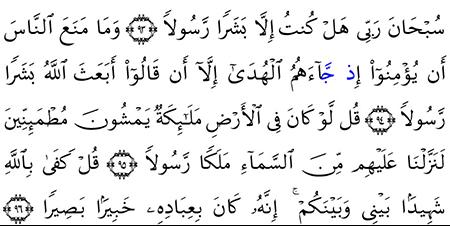 سُبۡحَانَ رَبِّي هَلۡ كُنتُ إِلَّا بَشَرٗا رَّسُولٗا ۝٩٣ وَمَا مَنَعَ ٱلنَّاسَ
أَن يُؤۡمِنُوٓاْ إِذ جَّآءَهُمُ ٱلۡهُدَىٰٓ إِلَّآ أَن قَالُوٓاْ أَبَعَثَ ٱللَّهُ بَشَرٗا
رَّسُولٗا ۝٩٤ قُل لَّوۡ كَانَ فِي ٱلۡأَرۡضِ مَلَٰٓئِكَةٞ يَمۡشُونَ مُطۡمَئِنِّينَ
لَنَزَّلۡنَا عَلَيۡهِم مِّنَ ٱلسَّمَآءِ مَلَكٗا رَّسُولٗا ۝٩٥ قُلۡ كَفَىٰ بِٱللَّهِ
شَهِيدَۢا بَيۡنِي وَبَيۡنَكُمۡۚ إِنَّهُۥ كَانَ بِعِبَادِهِۦ خَبِيرَۢا بَصِيرٗا ۝٩٦